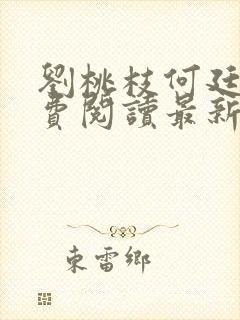 劉桃枝何廷
費閱讀最新
東雷鄉